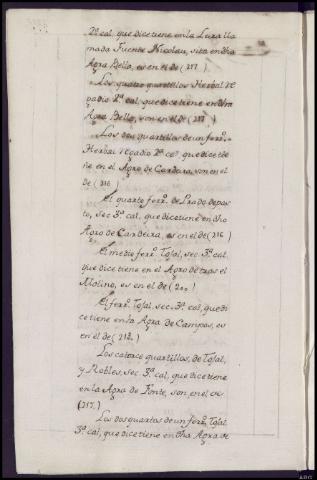 2ª cal. que dice tiene en la Luxa lla
mada Fuente Nicolau, sita en dha
Agra Bello, es en el de (217)
Los quatro quartillos Herbal re
gadio 2ª cal. que dice tiene en dha
Agra Bello, son en el de (217)
Los dos quartillos de un ferº.
Herbal regadio 2ª cal. que dice tie
ne en el Agro de Cardeira, son en el
de (216)
El quarto ferº. de Prado de pas
to, sec. 3ª cal. que dice tiene en dho
Agro de Cardeira, es en el de (216)
El medio ferº. Tojal, sec. 3ª cal.
que dice tiene en el Agro de tras el
Molino, es en el de (200)
El ferº. Tojal, sec. 3ª cal, que di
ce tiene en la Agra de Campos, es
en el de (218.)
Los catorce quartillos, de Tojal,
y Robles, sec. 3ª cal, que dice tiene
en la Agra de Fonte, son, en el de
(217.)
Los dos quartos de un ferº. Tojal
3ª cal, que dice tiene en dha Agra de